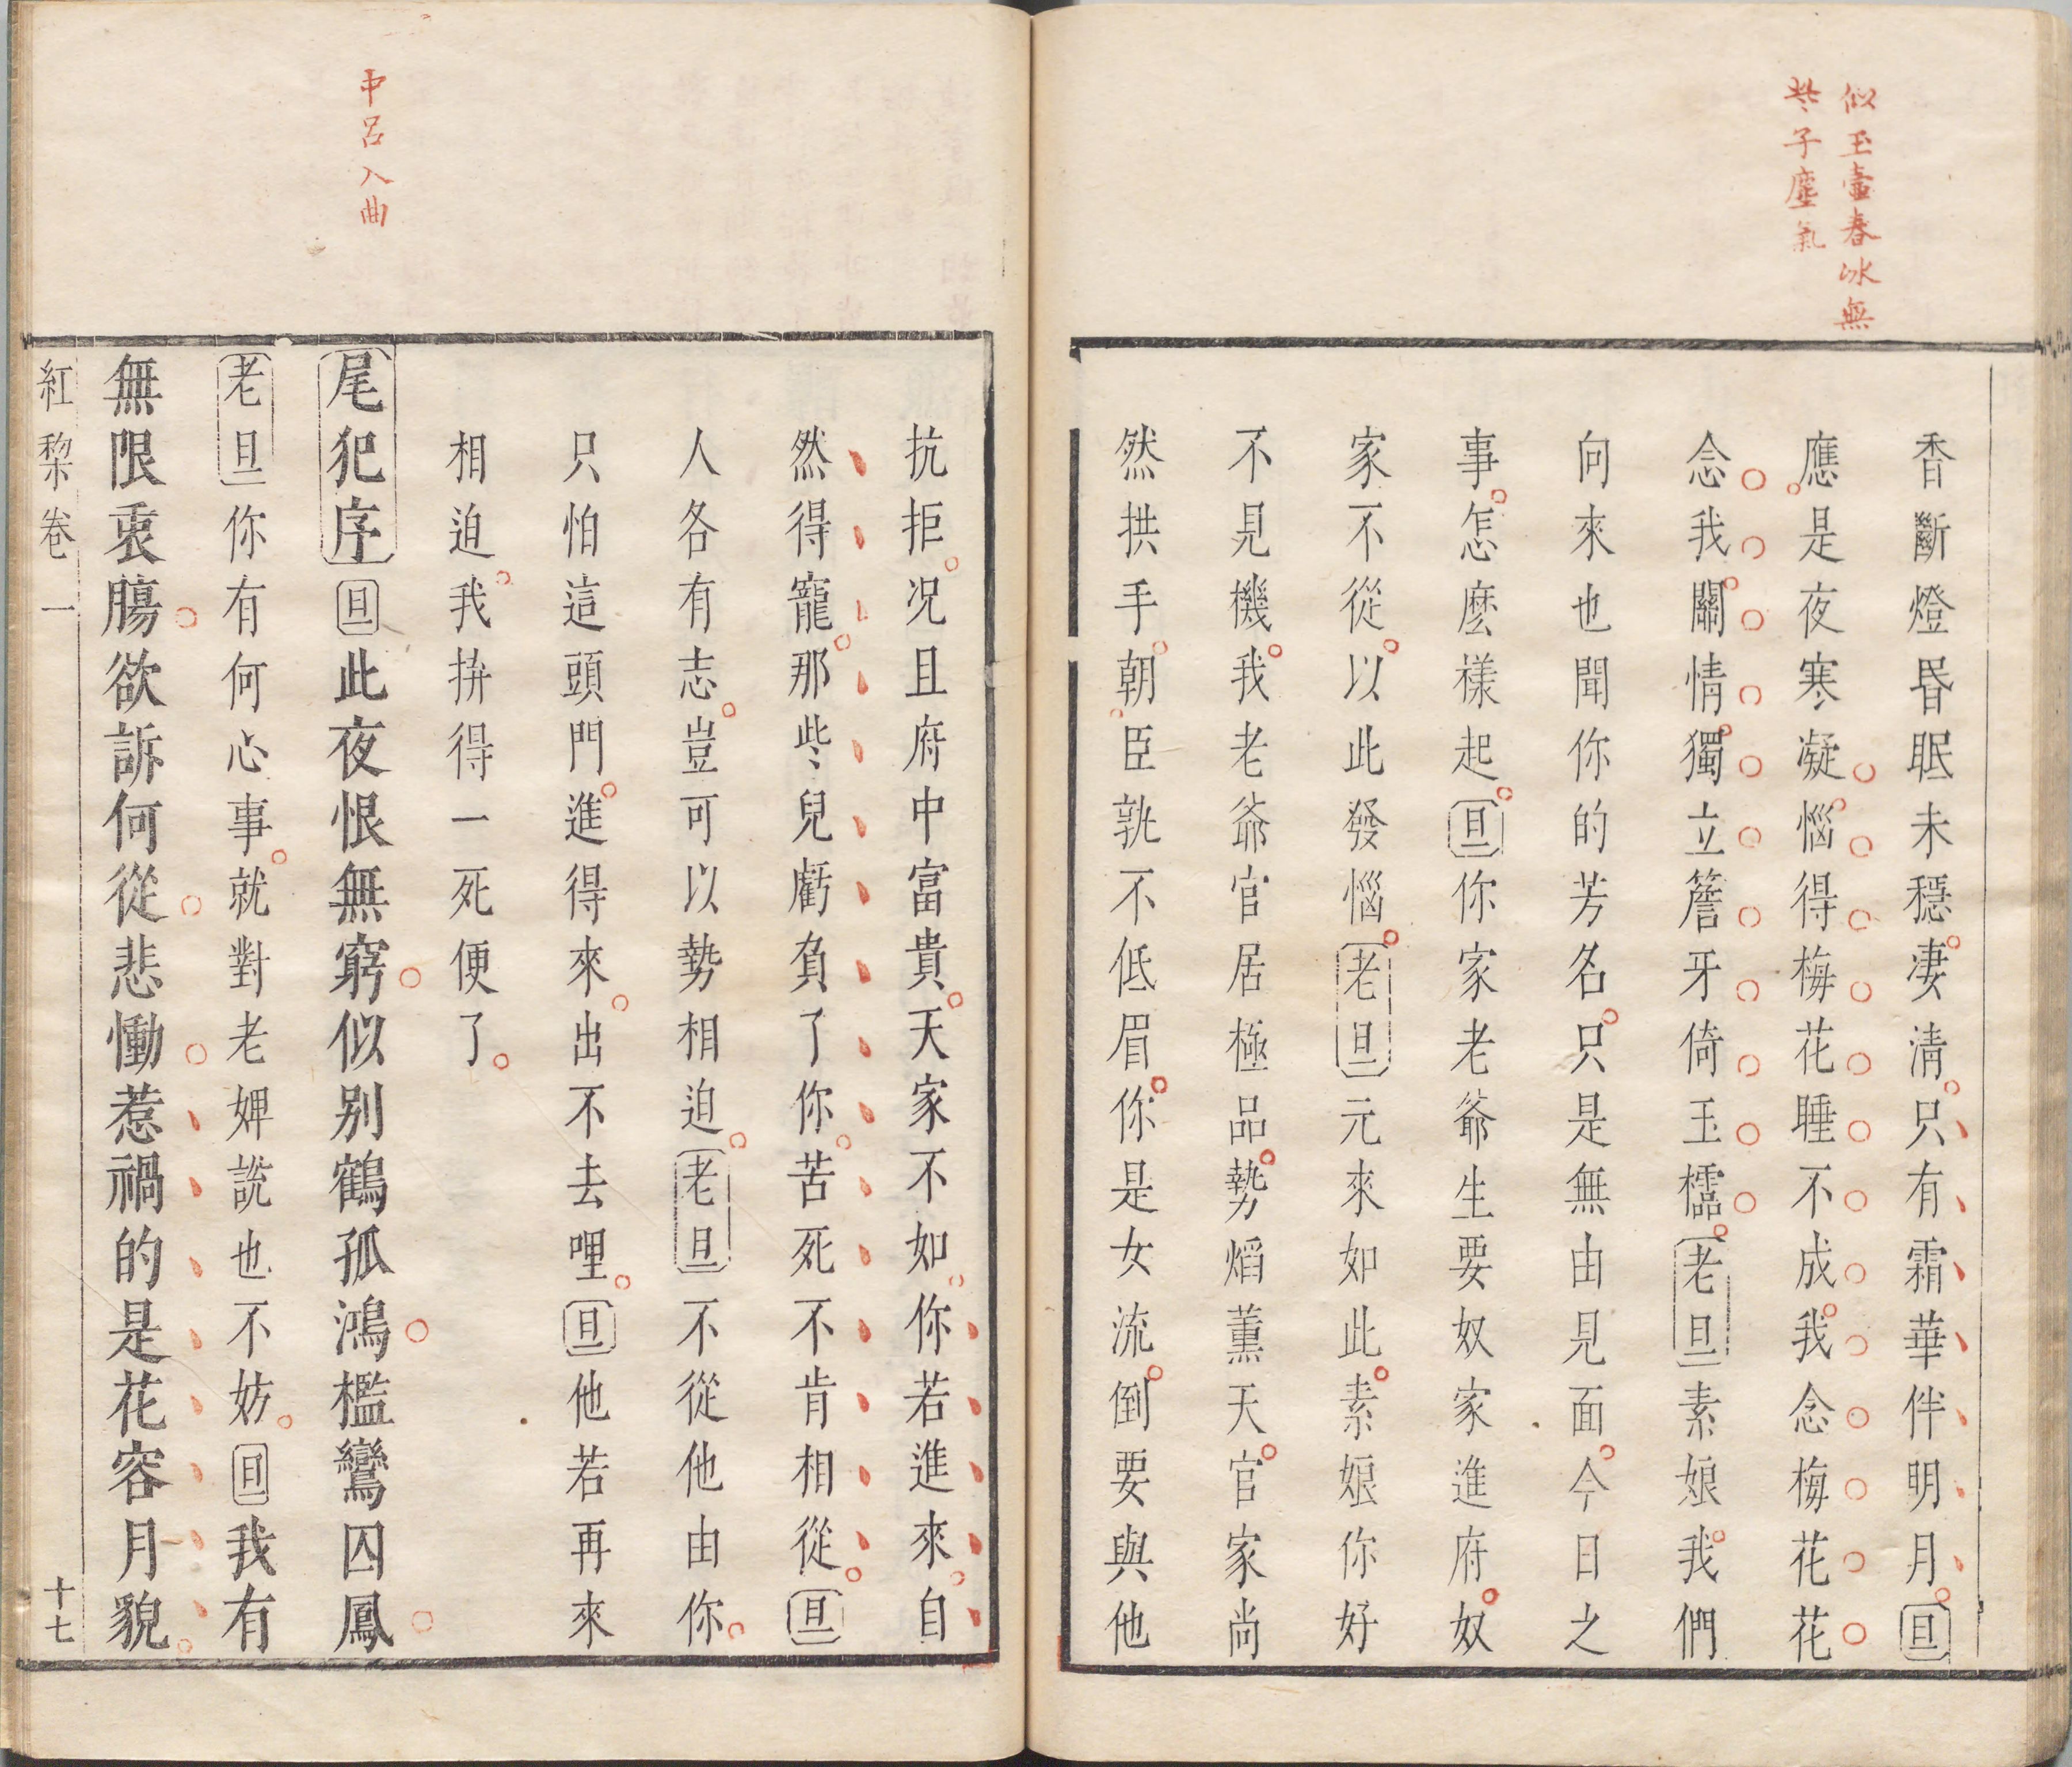 似玉壺春冰無
些子塵氣
香斷燈昏眠未穩淒清只有霜華伴明月旦
應是夜寒凝惱得梅花睡不成我念梅花花
念我關情獨立簷牙倚玉櫺老旦素娘我們
向來也聞你的芳名只是無由見面今日之
事怎麽樣起旦你家老爺生要奴家進府奴
家不從以此發惱老旦元來如此素娘你好
不見機我老爺官居極品勢焰薰天官家尚
然拱手朝臣孰不低眉你是女流倒要與他
抗拒况且府中富貴天家不如你若進來自
然得寵那些兒虧負了你苦死不肯相從旦
人各有志豈可以勢相迫老旦不從他由你
只怕這頭門進得來出不去哩旦他若再來
相迫我拚得一死便了
中呂入曲
尾犯序旦此夜恨無窮似别鶴孤鴻檻鸞囚鳳
老旦你有何心事就對老婢說也不妨旦我有
無限衷腸欲訴何從悲慟惹禍的是花容月貌
紅梨卷一
十七